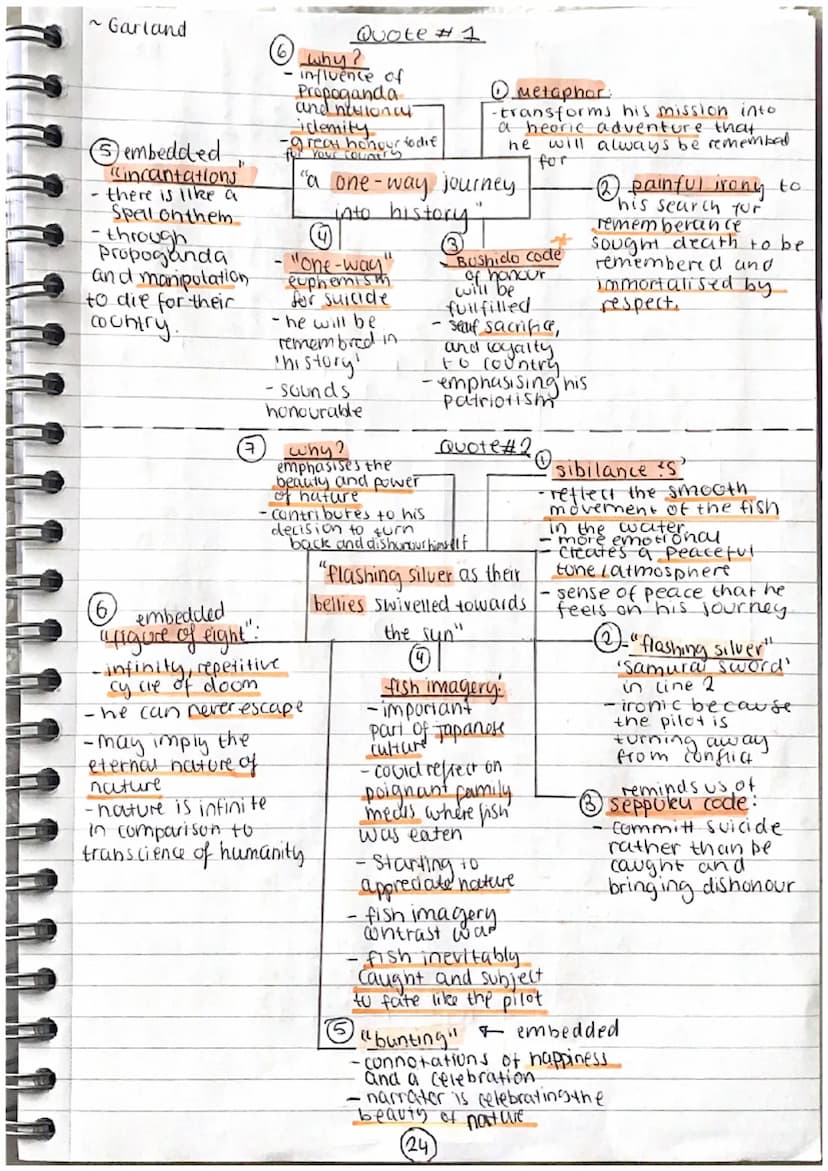 ~ Garland
Quote # 1
⑥ why?
- influence of
Propoganda
and nationa
idemity
- great honour to die
for your country
① Metaphor:
- transforms his mission into
a heoric adventure that
he will always be remembed
for
⑤ embedded
"incantations"
- there is like a
spell on them
- through
Propoganda
and manipulation
to die for their
country.
"a one-way journey
into history"
② painful irony to
his search for
rememberance
sought death to be
remembered and
immortalised by
respect.
④
- "one-way"
euphemism
for suicide
- he will be
remembred in
'history'
- sounds
honourable
③
- Bushido code
of honour
will be
fullfilled
- self sacrifice,
and loyalty
to country
- emphasising his
patriotism
Quote #2
⑦ why?
emphasises the
beauty and power
of nature
- contributes to his
decision to turn
back and dishonour himself
① sibilance 'S'
- reflect the smooth
movement of the fish
in the water
- more emotional
- creates a peaceful
tone/atmosphere
- sense of peace that he
feels on his journey
"flashing silver as their
bellies swivelled towards
the sun"
⑥ embedded
"figure of eight":
- infinity, repetitive
cycle of doom
- he can never escape
- may imply the
eternal nature of
nature
- nature is infinite
in comparison to
transcience of humanity
② - "flashing silver"
'Samurai sword'
in line 2
- ironic because
the pilot is
turning away
from conflict
④
fish imagery:
- important
part of Japanese
culture
- could reflect on
poignant family
meals where fish
was eaten
- Starting to
appreciate nature
- fish imagery
contrast war
- fish inevitably
caught and subject
to fate like the pilot
reminds us of
③ seppuku code:
- committ suicide
rather than be
caught and
bringing dishonour
⑤ "bunting" ← embedded
- connotations of happiness
and a celebration
- narrator is celebrating the
beauty of nature
24